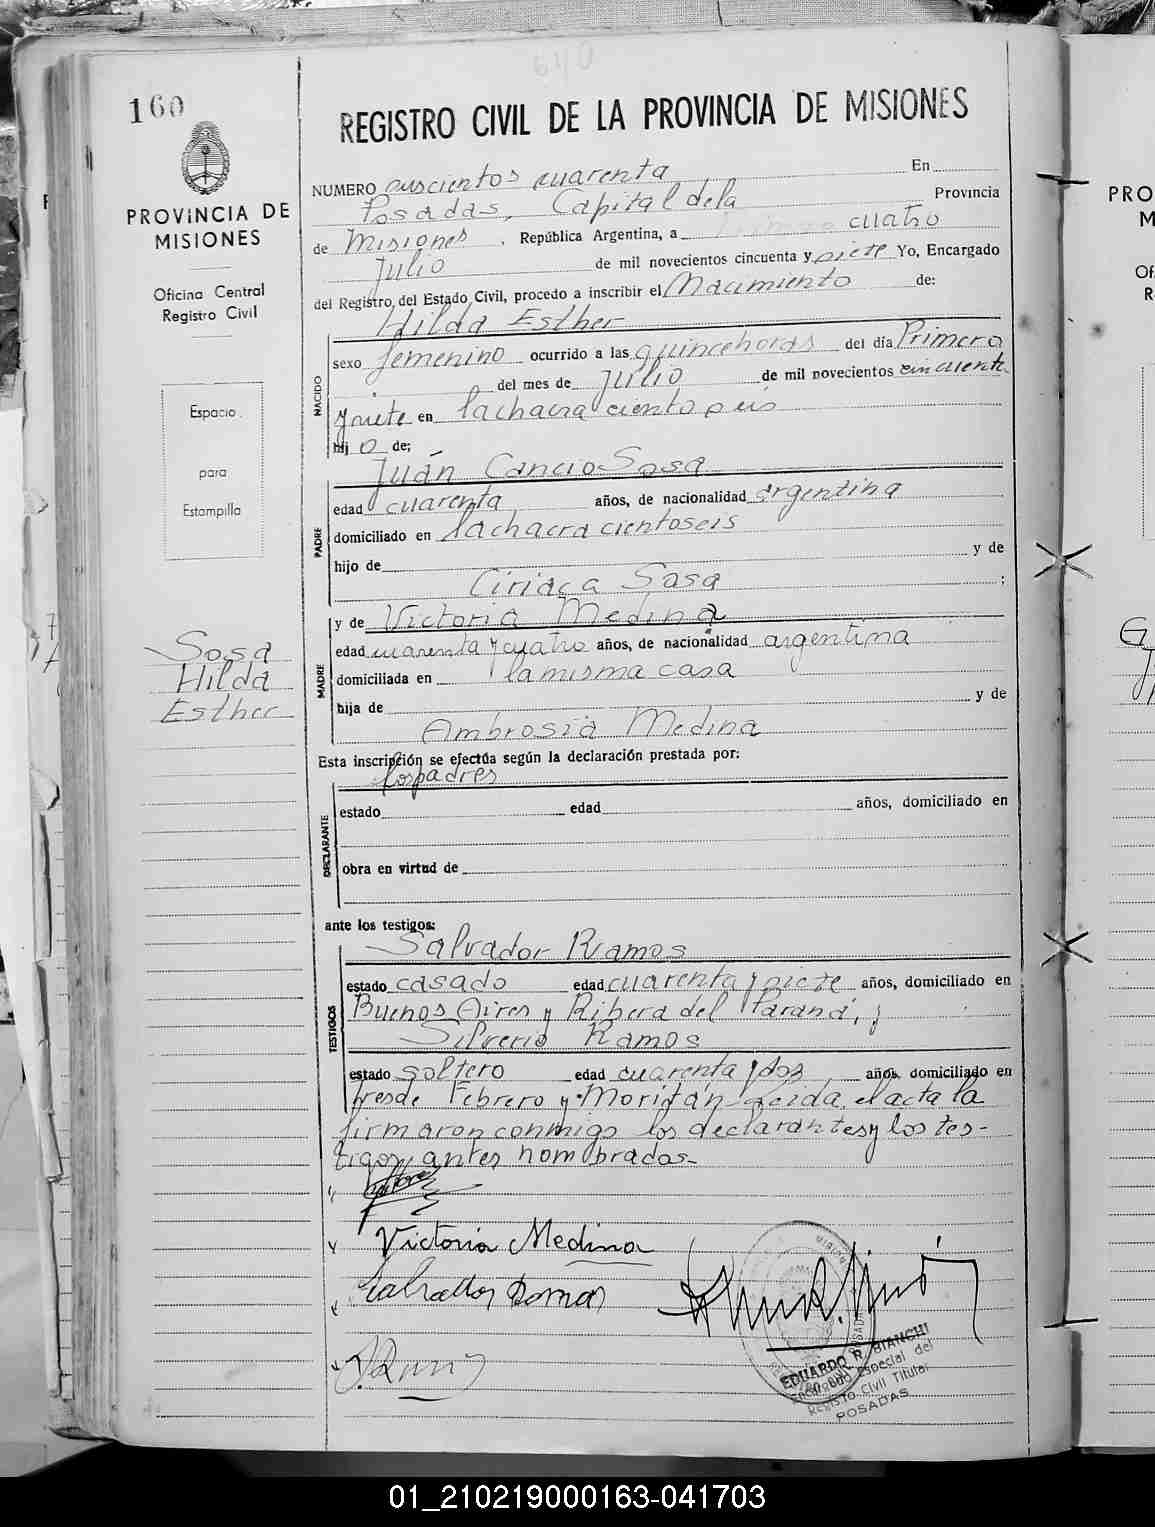 640
160
REGISTRO CIVIL DE LA PROVINCIA DE MISIONES
PROVINCIA DE
MISIONES
Oficina Central
Registro Civil
Espacio
para
Estampilla
Sosa
Hilda
Esther
NUMERO cuarenta En
Posadas, Capital dela Provincia
de Misiones, República Argentina, a cuatro
Julio de mil novecientos cincuenta y siete Yo, Encargado
del Registro del Estado Civil, procedo a inscribir el Nacimiento de:
Hilda Esther
NACIDO
sexo femenino ocurrido a las quincehoras del día Primero
del mes de Julio de mil novecientos cincuenta
y siete en lachacra ciento seis
hij o de;
Juán Cancio Sosa
PADRE
edad cuarenta años, de nacionalidad argentina
domiciliado en lachacra cientoseis
hijo de y de
Ciriaca Sosa ;
y de Victoria Medina
MADRE
edad cuarenta y cuatro años, de nacionalidad argentina
domiciliada en lamisma casa
hija de y de
Ambrosia Medina
Esta inscripción se efectúa según la declaración prestada por:
lospadres
DECLARANTE
estado edad años, domiciliado en
obra en virtud de
ante los testigos:
Salvador Ramos
TESTIGOS
estado casado edad cuarenta y siete años, domiciliado en
Buenos Aires y Ribera del Paraná, ;
Silverio Ramos
estado soltero edad cuarenta y dos años, domiciliado en
tresde Febrero y Leida el acta la
firmaron conmigo los declarantes y los tes-
tigos, antes nombrados-
Victoria Medina
Salvador Ramos
EDUARDO R. BIANCHI
Encargado Especial del
Registro Civil Titular
POSADAS
PRO
M
Of
R
01_210219000163-041703